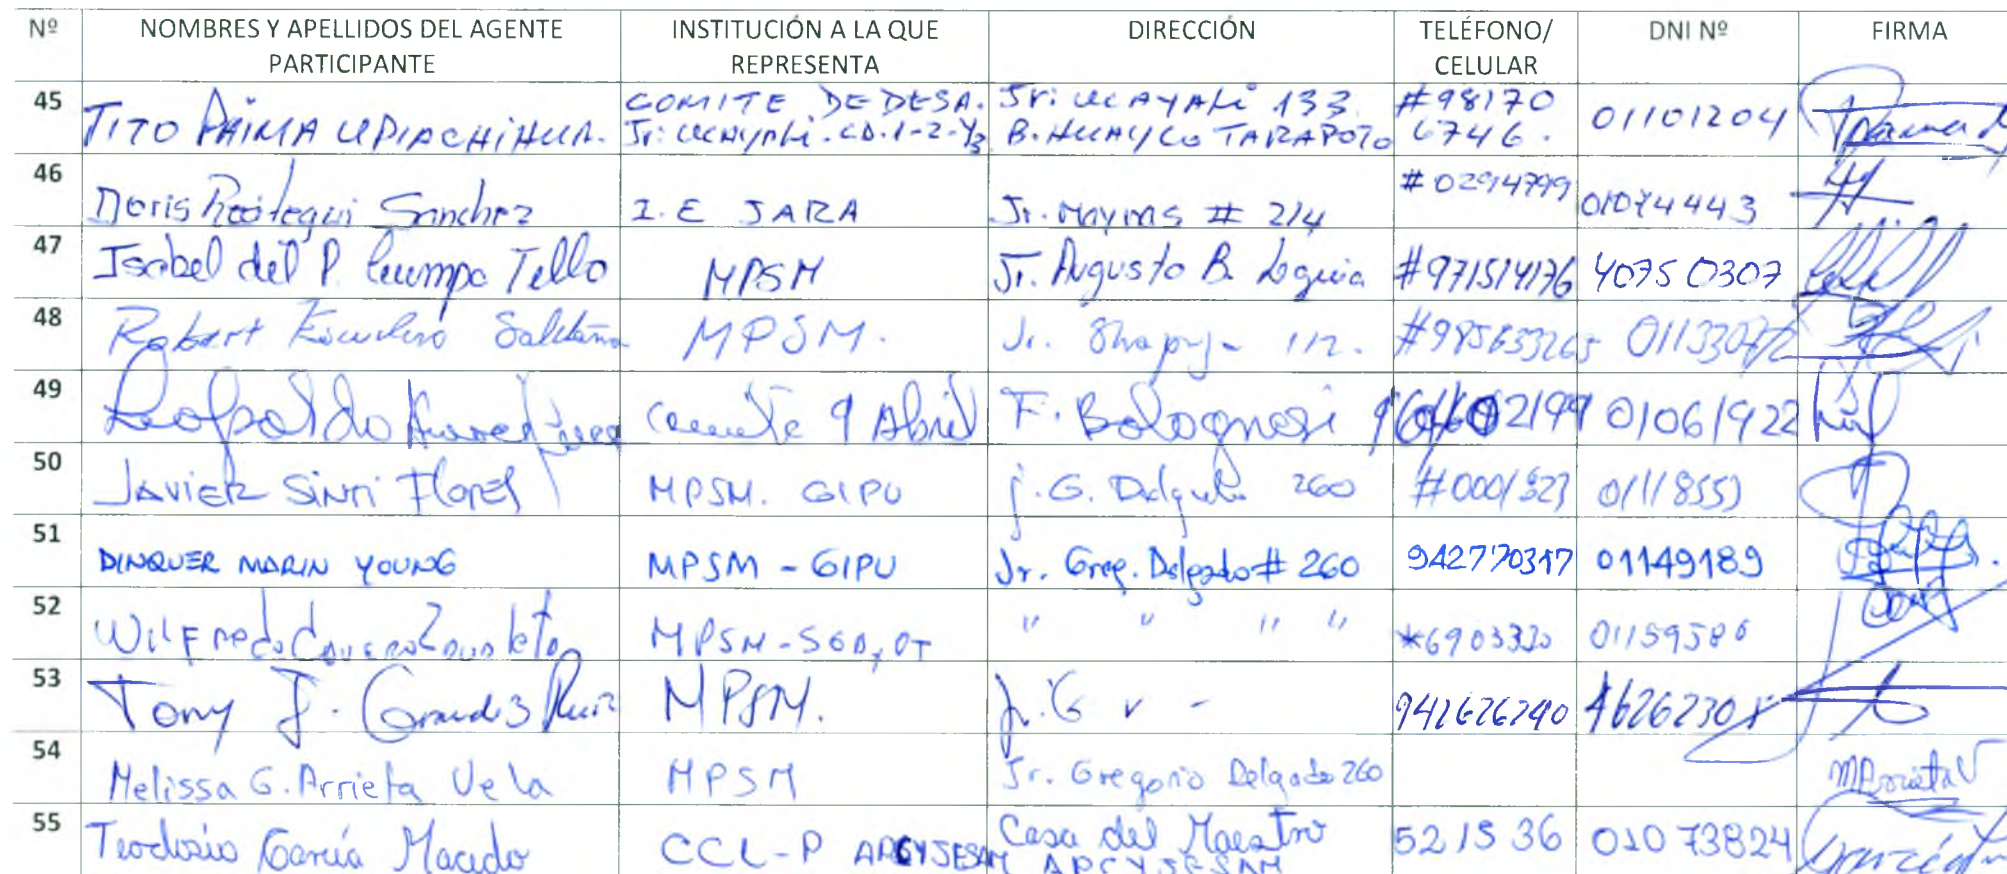 Nº NOMBRES Y APELLIDOS DEL AGENTE PARTICIPANTE INSTITUCIÓN A LA QUE REPRESENTA DIRECCIÓN TELÉFONO/ CELULAR DNI Nº FIRMA
45 TITO PAIMA UPIACHIHUA. COMITE DE DESA. Jr: UCAYALI 133 #98170 01101204
Jr: UCAYALI. CD. 1-2-Y3 B. HUAYCO TARAPOTO 6746.
46 Doris Reátegui Sanchez I.E JARA Jr. Maynas # 214 #02914799 01074443
47 Isabel del P. Cumpa Tello MPSM Jr. Augusto B. Leguia #971514176 40750307
48 Robert Escudero Saldaña MPSM. Jr. 112. #985633265
49 Leopoldo Comite 9 Abril F. Bolognesi 01061922
50 JAVIER SINTI Flores MPSM. GIPU J. G. Delgado 260
51 DINQUER MARIN YOUNG MPSM - GIPU Jr. Greg. Delgado # 260 942770317 01149189
52 WILFredo MPSM- " " " " *6903330 01159586
53 Tony J. Grandez Ruiz MPSM. Jr. G 942626240
54 Melissa G. Arrieta Vela MPSM Jr. Gregorio Delgado 260 MArrietaV
55 Teodosio García Macedo CCL-P APCYJESAM Casa del Maestro 521536 01073824
APCYJESAM